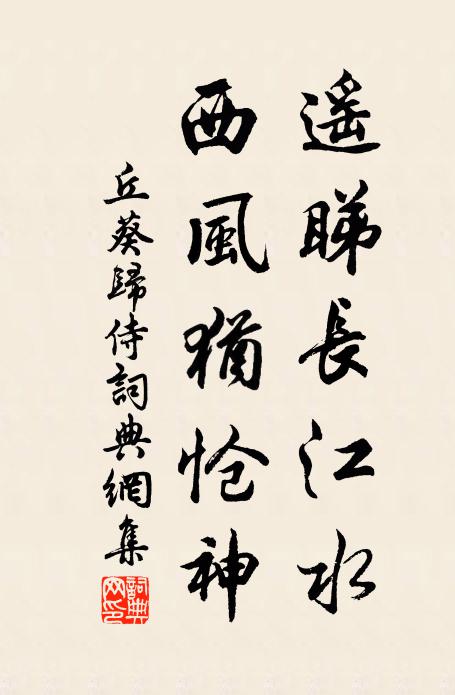 遙睇長江水
西風猶怆神
丘葵歸侍詞典網集
詞典
网印